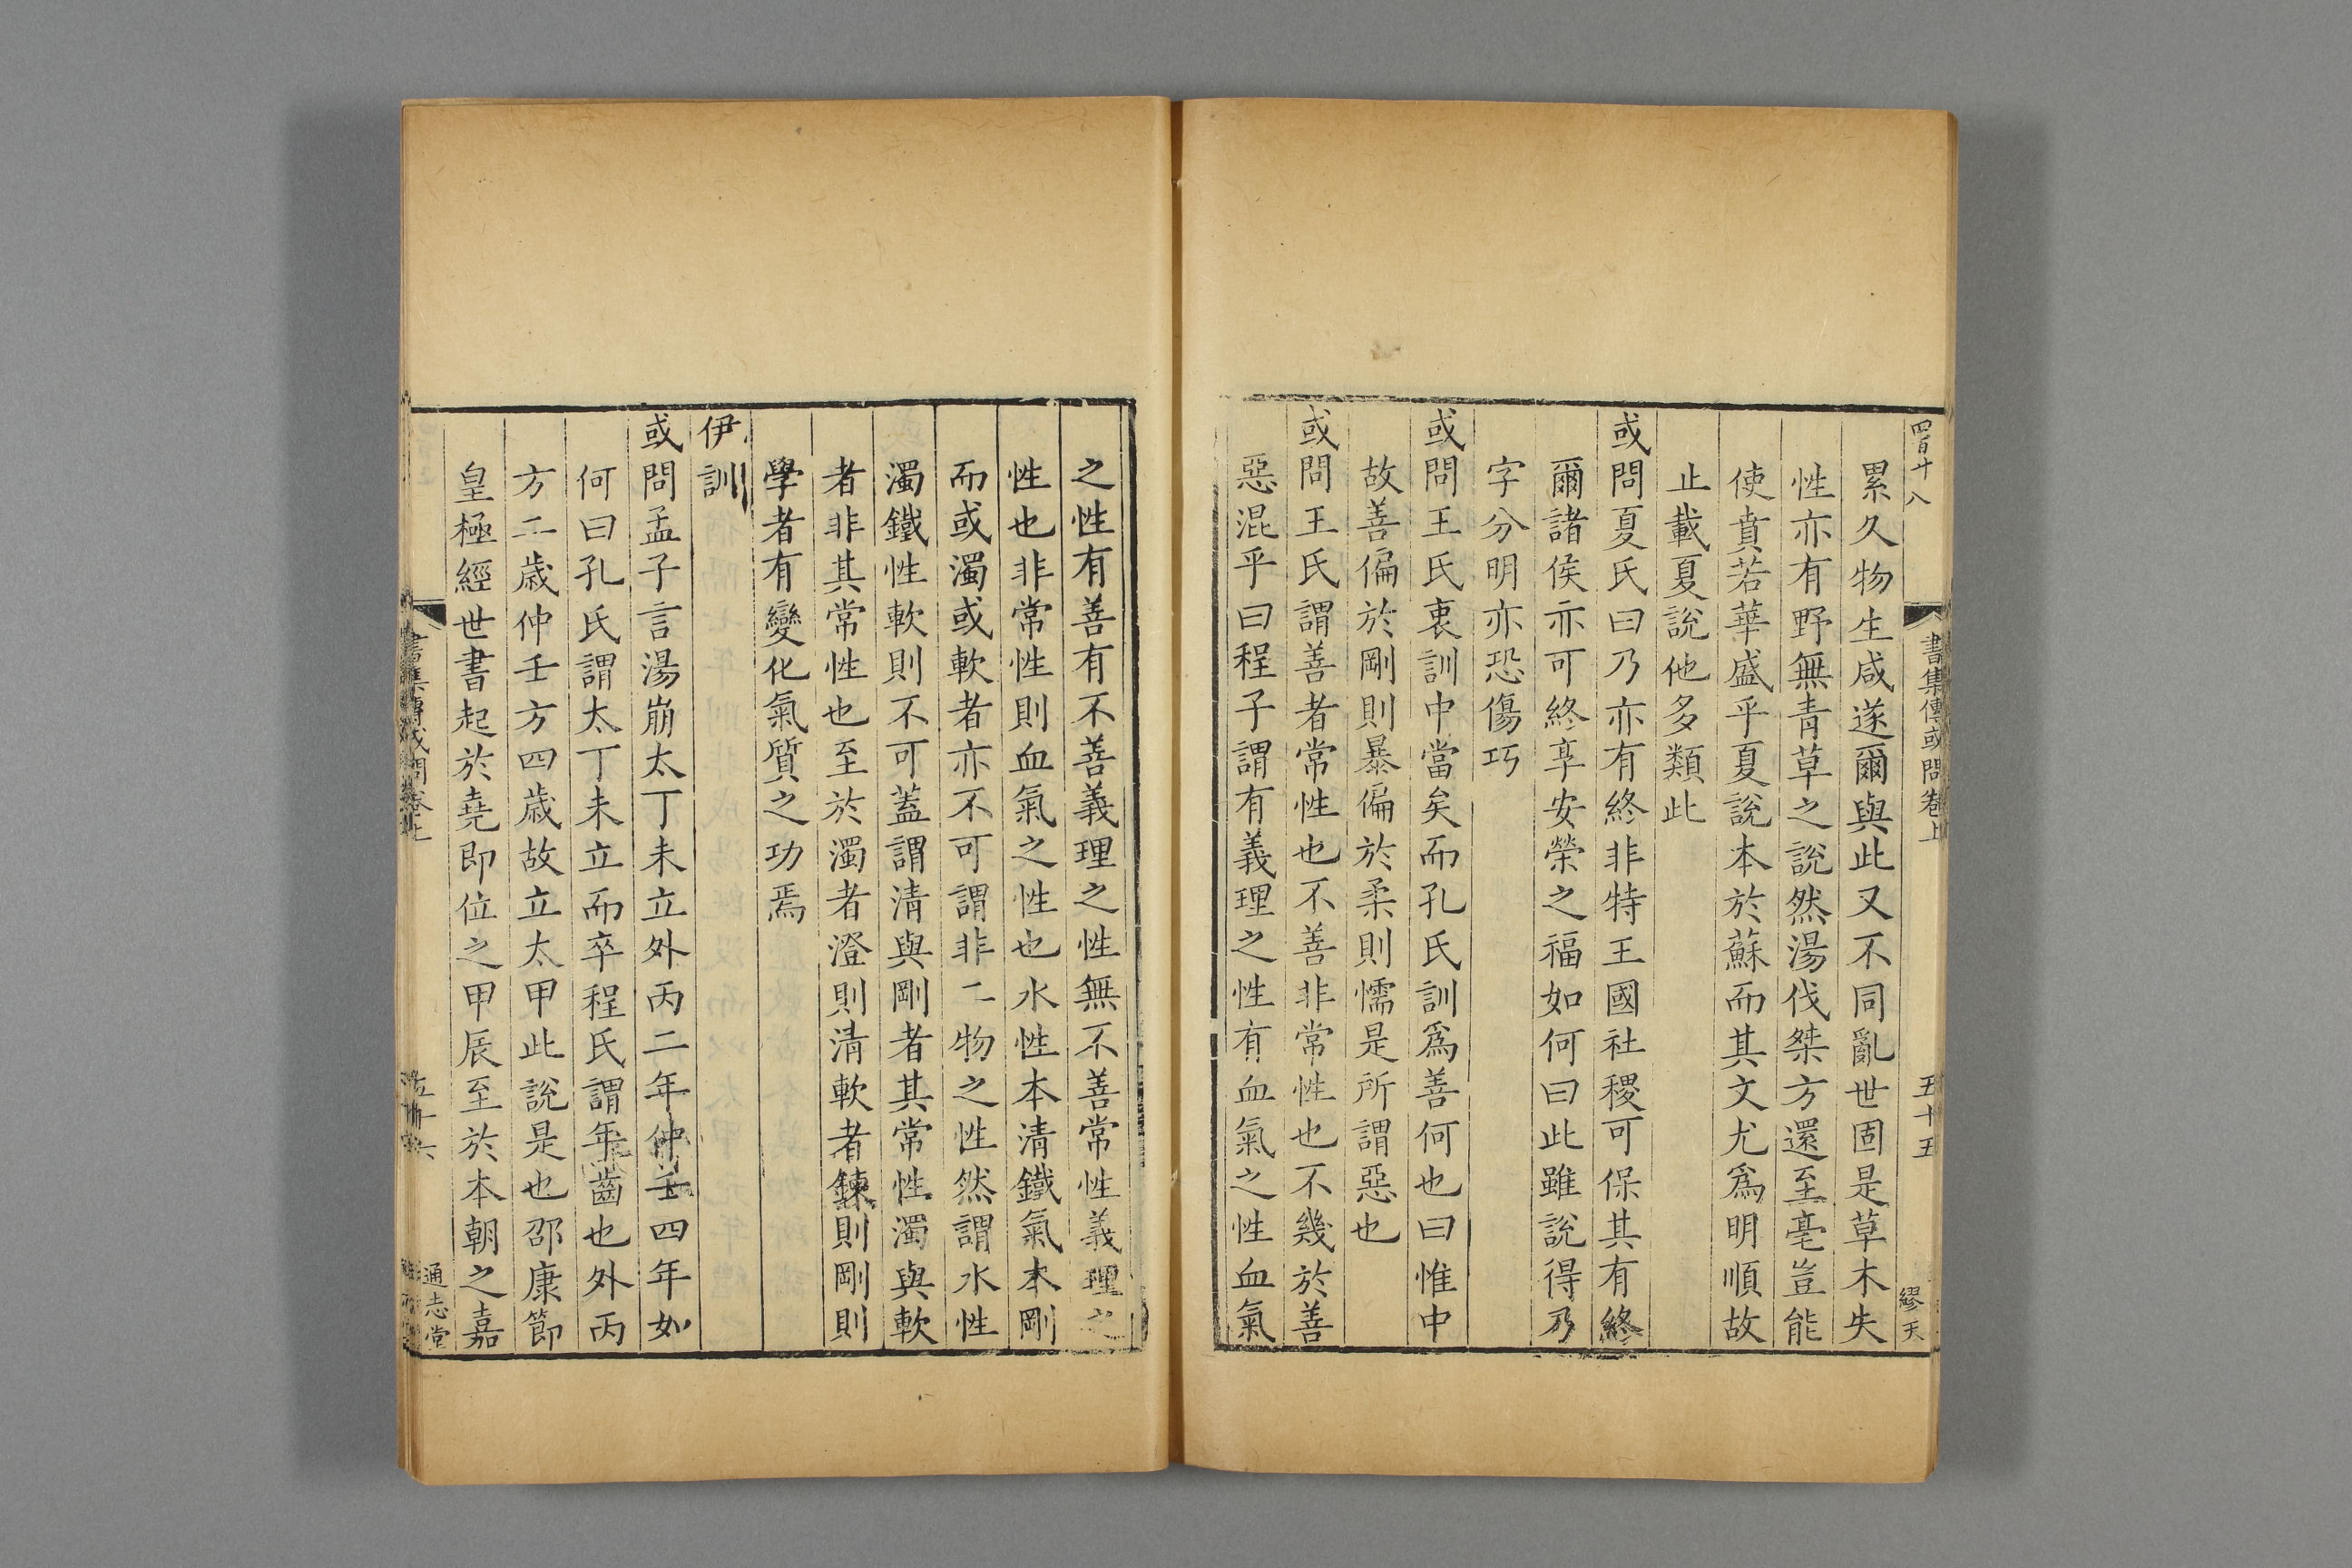 四百十八
書集傳或問卷上
五十五
繆天
累久物生咸遂爾與此又不同亂世固是草木失
性亦有野無青草之說然湯伐桀方還至亳豈能
使賁若華盛乎夏說本於蘇而其文尤爲明順故
止載夏說他多類此
或問夏氏曰乃亦有終非特王國社稷可保其有終
爾諸侯亦可終享安榮之福如何曰此雖說得乃
字分明亦恐傷巧
或問王氏衷訓中當矣而孔氏訓爲善何也曰惟中
故善偏於剛則暴偏於柔則懦是所謂惡也
或問王氏謂善者常性也不善非常性也不幾於善
惡混乎曰程子謂有義理之性有血氣之性血氣
之性有善有不善義理之性無不善常性義理之
性也非常性則血氣之性也水性本清鐵氣本剛
而或濁或軟者亦不可謂非二物之性然謂水性
濁鐵性軟則不可蓋謂清與剛者其常性濁與軟
者非其常性也至於濁者澄則清軟者鍊則剛則
學者有變化氣質之功焉
伊訓
或問孟子言湯崩太丁未立外丙二年仲壬四年如
何曰孔氏謂太丁未立而卒程氏謂年齒也外丙
方二歲仲壬方四歲故立太甲此說是也邵康節
皇極經世書起於堯即位之甲辰至於本朝之嘉
書集傳或問卷上
五十六
通志堂